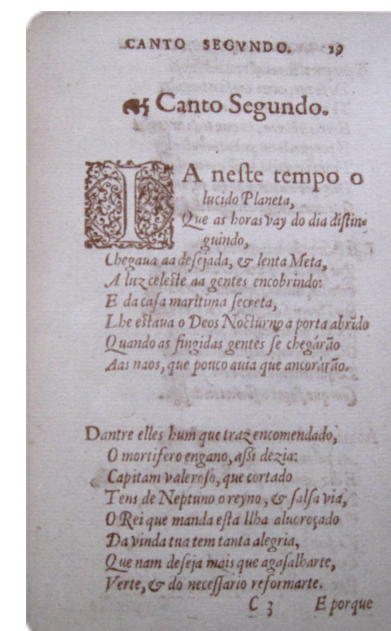 CANTO SEGVNDO. 29
Canto Segundo.
IA neste tempo o
lucido Planeta,
Que as horas vay do dia distin-
guindo,
Chegaua aa desejada, & lenta Meta,
A luz celeste aa gentes encobrindo:
E da casa maritima secreta,
Lhe estaua o Deos Nocturno a porta abrido
Quando as fingidas gentes se chegárão
Aas naos, que pouco auia que ancorárão.
Dantre elles hum que traz encomendado,
O mortifero engano, assi dezia:
Capitam valeroso, que cortado
Tens de Neptuno o reyno, & salsa via,
O Rei que manda esta Ilha aluoroçado
Da vinda tua tem tanta alegria,
Que nam deseja mais que agasalharte,
Verte, & do necessario reformarte.
C 3 E porque